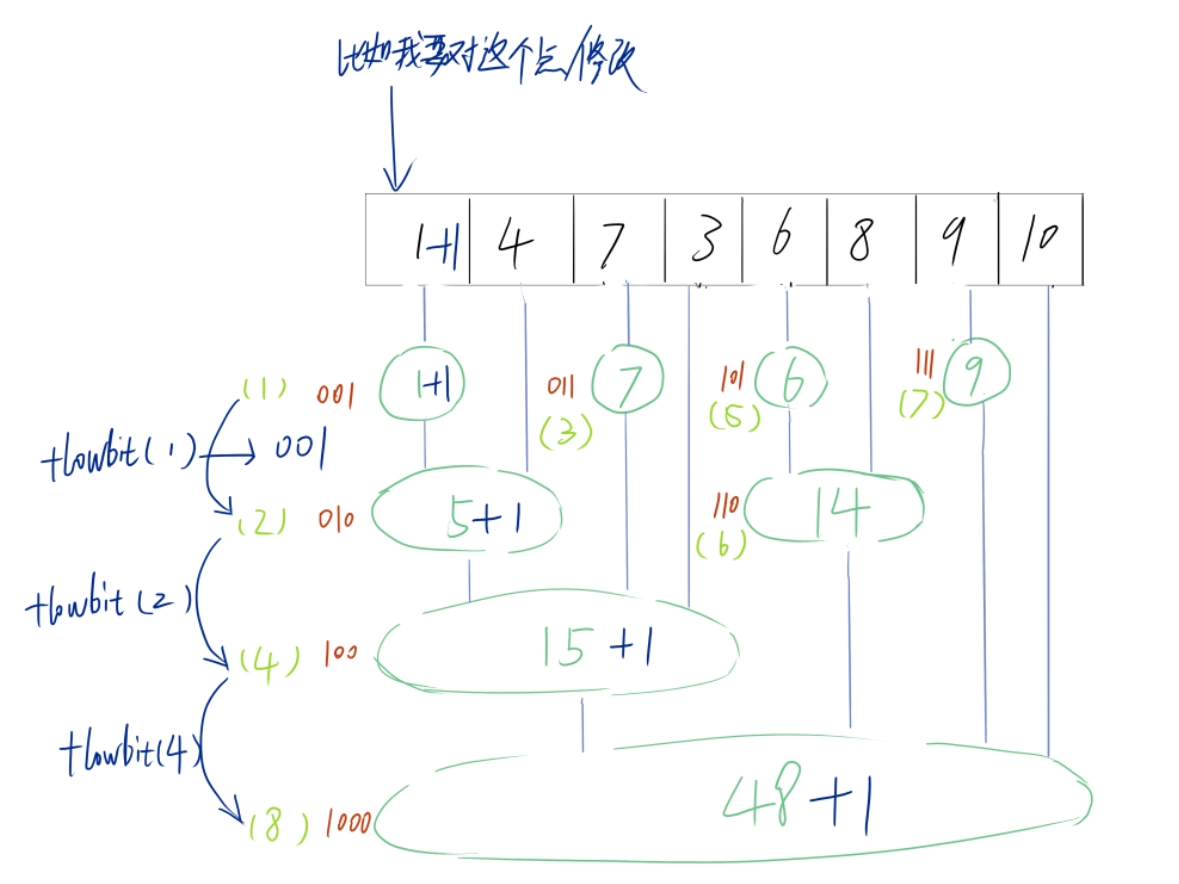 比如我要对这个点修改
1+1 4 7 3 6 8 9 10
(1) 001 1+1 011 7 101 6 111 9
(3) (5) (7)
+lowbit(1) 001
(2) 010 5+1 110 14
(6)
+lowbit(2)
(4) 100 15+1
+lowbit(4)
(8) 1000 48+1